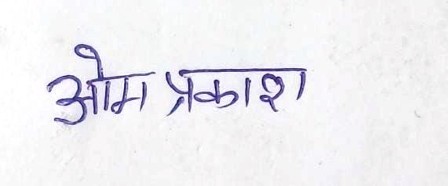 ओम प्रकाश